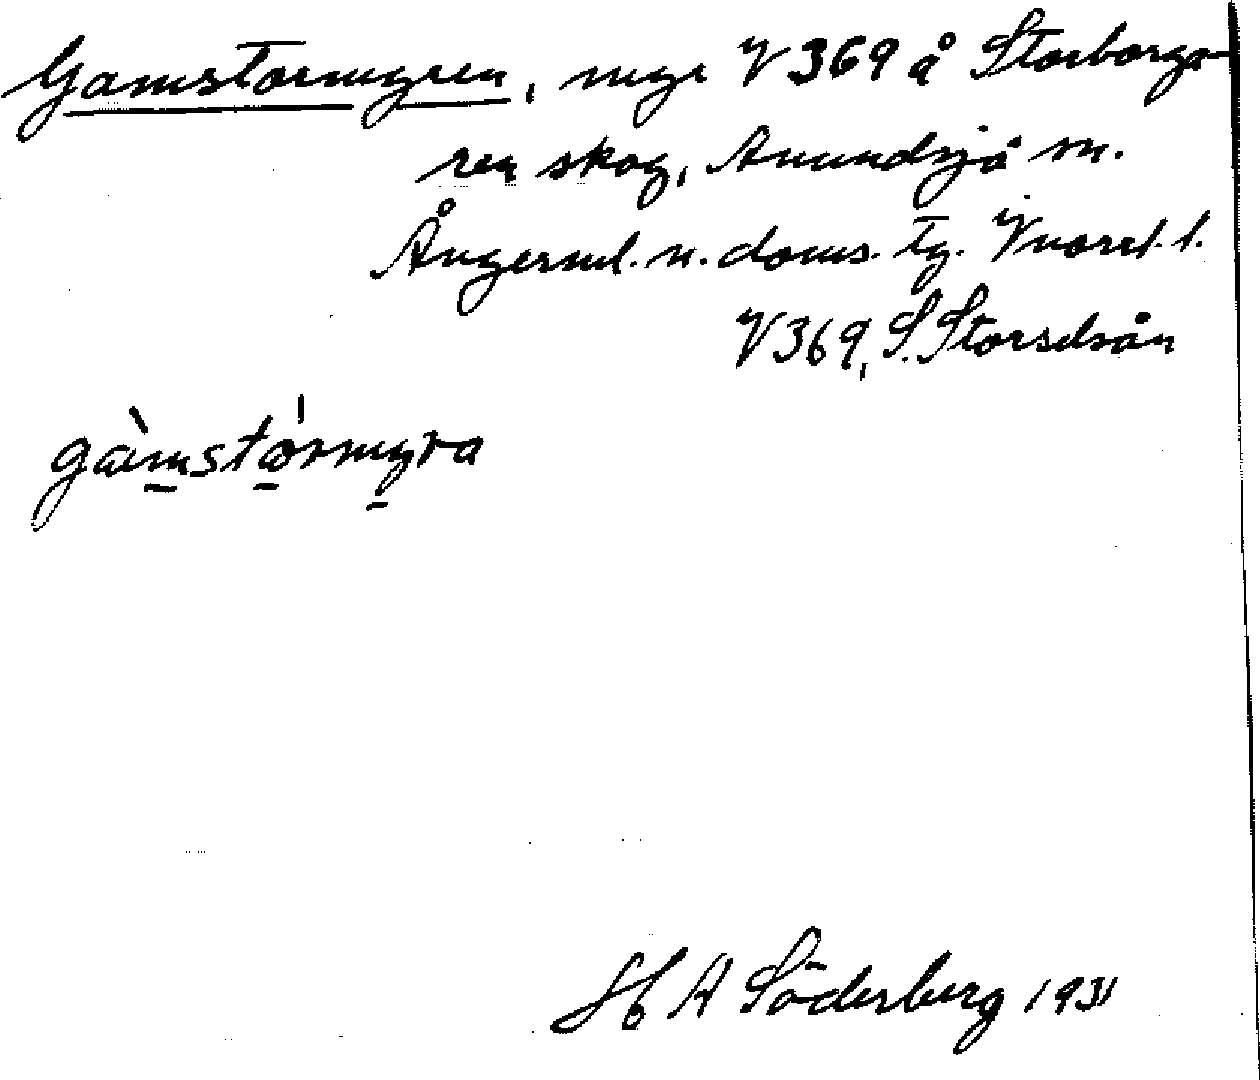 Gamstormyren, myr V 369 å Storborga-
ren skog, Anundsjö sn.
Ångerml. n. doms. tg. Vuorel. l.
V 369, S. Storselsån
gàmstórmyra
H A Söderberg 1931